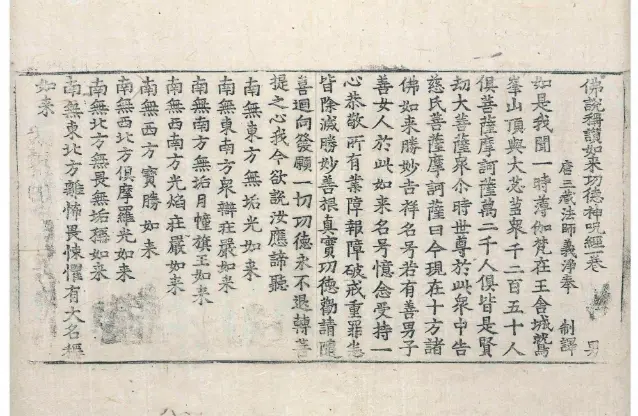 佛說稱讚如来功德神呪經卷
唐三藏法師義淨奉 制譯 男
如是我聞一時薄伽梵在王舍城鷲
峯山頂與大苾蒭衆千二百五十人
俱菩薩摩訶薩萬二千人俱皆是賢
劫大菩薩衆尒時世尊於此衆中告
慈氏菩薩摩訶薩曰今現在十方諸
佛如来勝妙吉祥名号若有善男子
善女人於此如来名号憶念受持一
心恭敬所有業障報障破戒重罪悉
皆除滅勝妙善根真實功德勸請隨
喜迴向發願一切功德永不退轉菩
提之心我今欲說汝應諦聽
南無東方無垢光如来
南無東南方衆辯莊嚴如来
南無南方無垢月幢旗王如来
南無西南方光焰莊嚴如来
南無西方寶勝如来
南無西北方俱摩羅光如来
南無北方無畏無垢穩如来
南無東北方離怖畏悚懼有大名稱
如来